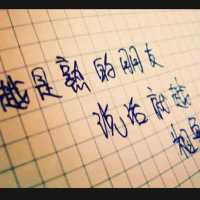 越是熟的朋友
说话就越